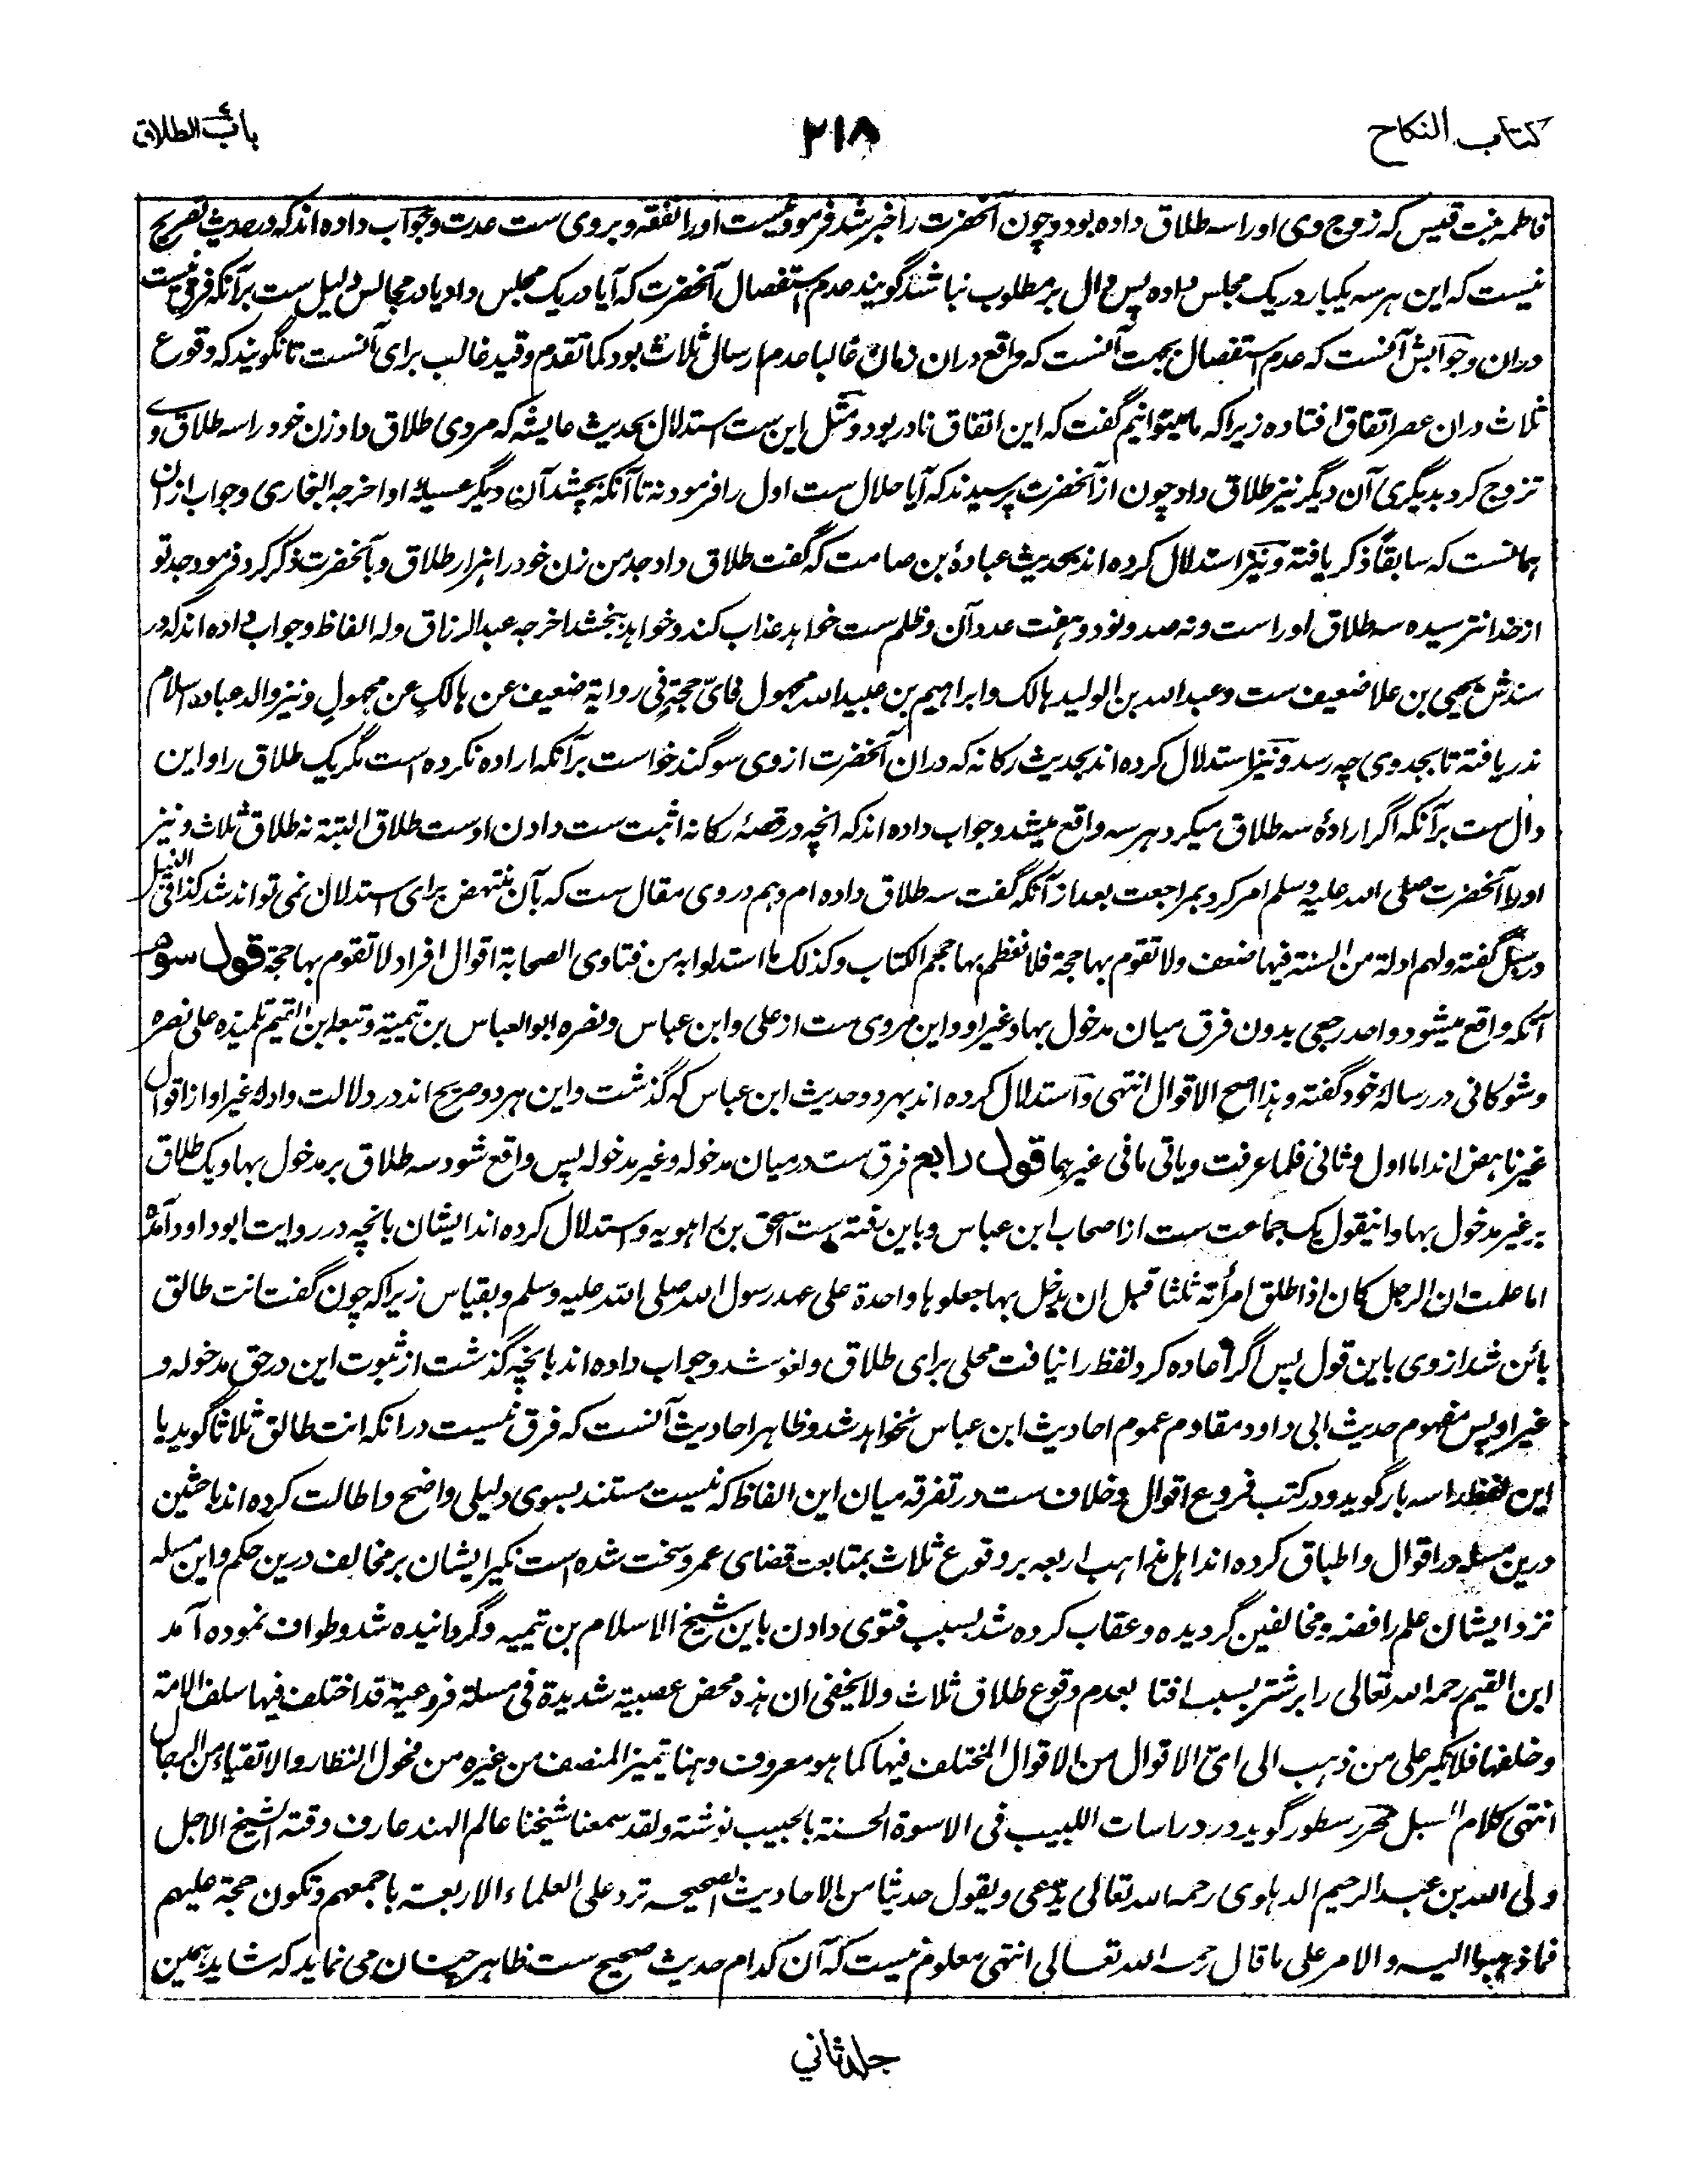 کتاب النکاح
۲۱۸
باب الطلاق
فاطمه بنت قیس که زوج وی اورا سه طلاق داده بود و چون آنحضرت را خبر شد فرمود نیست اورا نفقه و بر وی ست عدت و جواب داده اند که در حدیث تصریح
نیست که این هر سه یکبار در یک مجلس داده پس دال بر مطلوب نباشد گویند عدم استفصال آنحضرت که آیا در یک مجلس داد یا در مجالس دلیل ست برآنکه فرقی نیست
دران و جوابش آنست که عدم استفصال بجهت آنست که واقع دران زمان غالبا عدم ارسال ثلاث بود کما تقدم و قید غالب برای آنست تا نگویند که وقوع
ثلاث دران عصر اتفاق افتاده زیراکه ما میتوانیم گفت که این اتفاق نادر بود و مثل این ست استدلال بحدیث عایشه که مردی طلاق داد زن خود را سه طلاق وی
تزوج کرد بدیگری آن دیگر نیز طلاق داد چون از آنحضرت پرسیدند که آیا حلال ست اول را فرمود نه تا آنکه بچشد آن دیگر عسیلهٔ او اخرجه البخاری و جواب ازان
همانست که سابقاً ذکر یافته و نیز استدلال کرده اند بحدیث عبادهٔ بن صامت که گفت طلاق داد جد من زن خود را هزار طلاق و بآنحضرت ذکر کرد فرمود جد تو
از خدا نترسیده سه طلاق اوراست و نه صد و نود و هفت عدوان و ظلم ست خواهد عذاب کند و خواهد ببخشد اخرجه عبدالرزاق وله الفاظ و جواب داده اند که در
سندش یحیی بن علا ضعیف ست و عبدالله بن الولید هالک و ابراهیم بن عبیدالله مجهول فای حجة فی روایة ضعیف عن هالک عن مجهول و نیز والد عباده اسلام
ندریافته تا بجد وی چه رسد و نیز استدلال کرده اند بحدیث رکانه که دران آنحضرت از وی سوگند خواست برآنکه اراده نکرده است مگر یک طلاق را و این
دال ست برآنکه اگر ارادهٔ سه طلاق میکرد هر سه واقع میشد و جواب داده اند که انچه در قصهٔ رکانه اثبت ست دادن اوست طلاق البتة نه طلاق ثلاث و نیز
اورا آنحضرت صلی الله علیه وسلم امر کرد بمراجعت بعد از آنکه گفت سه طلاق داده ام و هم در وی مقال ست که بآن منتهض برای استدلال نمی تواند شد کذا فی النیل
در سبل گفته ولهم ادلة من السنة فیها ضعف ولا تقوم بها حجة فلا نعظم بها حجم الکتاب و کذلک ما استدلوا به من فتاوی الصحابة اقوال افراد لا تقوم بها حجة قول سوم
آنکه واقع میشود واحد رجعی بدون فرق میان مدخول بها و غیر او و این مروی ست از علی و ابن عباس و نصره ابوالعباس بن تیمیة و تبعه ابن القیم تلمیذه علی نصره
و شوکانی در رسالهٔ خود گفته و هذا اصح الاقوال انتهی و استدلال کرده اند بهر دو حدیث ابن عباس که گذشت و این هر دو صریح اند در دلالت و ادلهٔ غیر او از اقوال
غیر ناهض اند اما اول و ثانی فلما عرفت و یاتی ما فی غیرهما قول رابع فرق ست درمیان مدخوله و غیر مدخوله پس واقع شود سه طلاق بر مدخول بها و یک طلاق
بر غیر مدخول بها و اینقول یک جماعت ست از اصحاب ابن عباس و باین رفته ست اسحق بن راهویه و استدلال کرده اند ایشان بانچه در روایت ابوداود آمده
اما علمت ان الرجل کان اذا طلق امرأته ثلثا قبل ان یدخل بها جعلوها واحدة علی عهد رسول الله صلی الله علیه وسلم و بقیاس زیراکه چون گفت انت طالق
بائن شد از وی باین قول پس اگر اعاده کرد لفظ را نیافت محلی برای طلاق و لغو شد و جواب داده اند بانچه گذشت از ثبوت این در حق مدخوله و
غیر او پس مفهوم حدیث ابی داود مقاوم عموم احادیث ابن عباس نخواهد شد و ظاهر احادیث آنست که فرق نیست درانکه انت طالق ثلاثا گوید یا
این لفظ را سه بار گوید و در کتب فروع اقوال و خلاف ست در تفرقه میان این الفاظ که نیست مستند بسوی دلیلی واضح و اطالت کرده اند باحثین
درین مسئله در اقوال و اطباق کرده اند اهل مذاهب اربعه بر وقوع ثلاث بمتابعت قضای عمر و سخت شده است نکیر ایشان بر مخالف درین حکم و این مسئله
نزد ایشان علم رافضه و مخالفین گردیده و عقاب کرده شد بسبب فتوی دادن باین شیخ الاسلام بن تیمیه و گردانیده شد و طواف نموده آمد
ابن القیم رحمه الله تعالی را بر شتر بسبب افتا بعدم وقوع طلاق ثلاث ولا یخفی ان هذه محض عصبیة شدیدة فی مسئلة فروعیة قد اختلف فیها سلف الامة
و خلفها فلا نکیر علی من ذهب الی ای الاقوال من الاقوال المختلف فیها کما هو معروف و هنا یتمیز المنصف من غیره من فحول النظار والاتقیاء من الرجال
انتهی کلام السبل محرر سطور گوید در دراسات اللبیب فی الاسوة الحسنة بالحبیب نوشته ولقد سمعنا شیخنا عالم الهند عارف وقته الشیخ الاجل
ولی الله بن عبد الرحیم الدهلوی رحمه الله تعالی یدعی و یقول حدیثا من الاحادیث الصحیحه ترد علی العلماء الاربعة باجمعهم و تکون حجة علیهم
فما ذهبوا الیه و الامر علی ما قال رحمه الله تعالی انتهی معلوم نیست که آن کدام حدیث صحیح ست ظاهر چنان می نماید که شاید همین
جلد ثانی